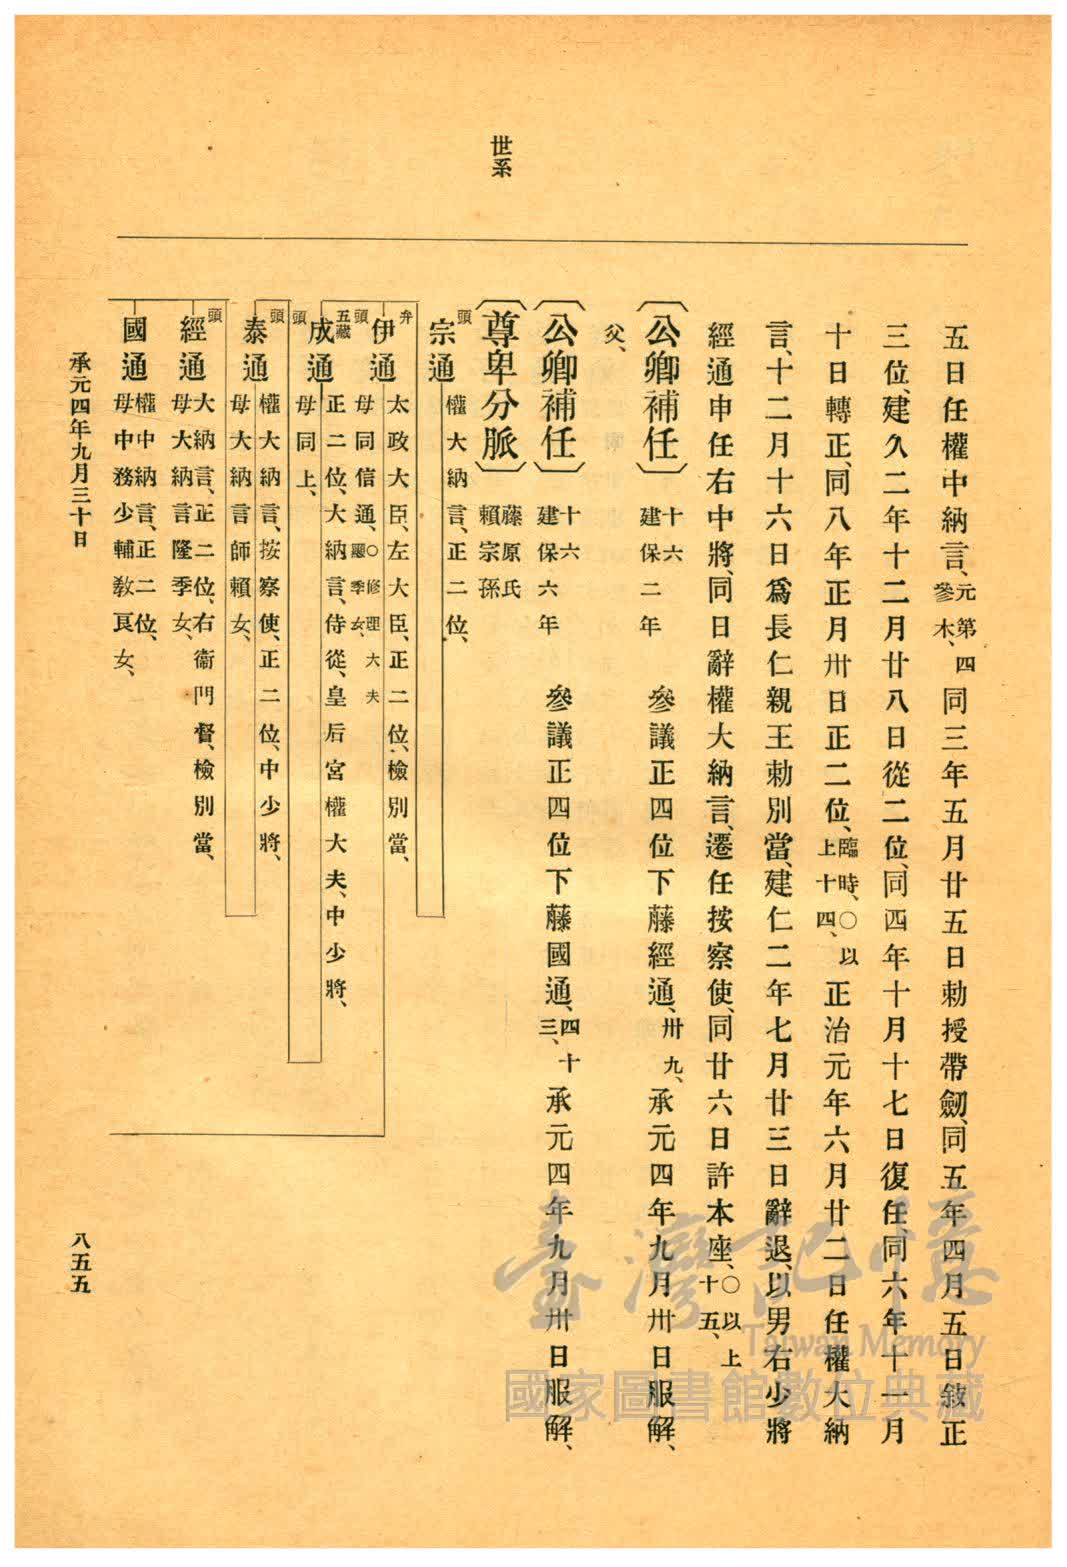 世系
五日任權中納言、元第四參木、同三年五月廿五日勅授帶劒、同五年四月五日敍正
三位、建久二年十二月廿八日從二位、同四年十月十七日復任、同六年十一月
十日轉正、同八年正月卅日正二位、臨時、〇以上十四、正治元年六月廿二日任權大納
言、十二月十六日爲長仁親王勅別當、建仁二年七月廿三日辭退、以男右少將
經通申任右中將、同日辭權大納言、遷任按察使、同廿六日許本座、〇以上十五、
〔公卿補任〕十六建保二年 參議正四位下藤經通、卅九、承元四年九月卅日服解、
父、
〔公卿補任〕十六建保六年 參議正四位下藤國通、四十三、承元四年九月卅日服解、
〔尊卑分脈〕藤原氏賴宗孫
頭
宗通 權大納言、正二位、
弁
伊通 太政大臣、左大臣、正二位、檢別當、
母同信通、〇修理大夫顯季女、
頭
五藏
成通 正二位、大納言、侍從、皇后宮權大夫、中少將、
母同上、
頭
頭
泰通 權大納言、按察使、正二位、中少將、
母大納言師賴女、
頭
經通 大納言、正二位、右衞門督、檢別當、
母大納言隆季女、
國通 權中納言、正二位、
母中務少輔敎良女、
承元四年九月三十日
八五五
臺灣記憶
Taiwan Memory
國家圖書館數位典藏